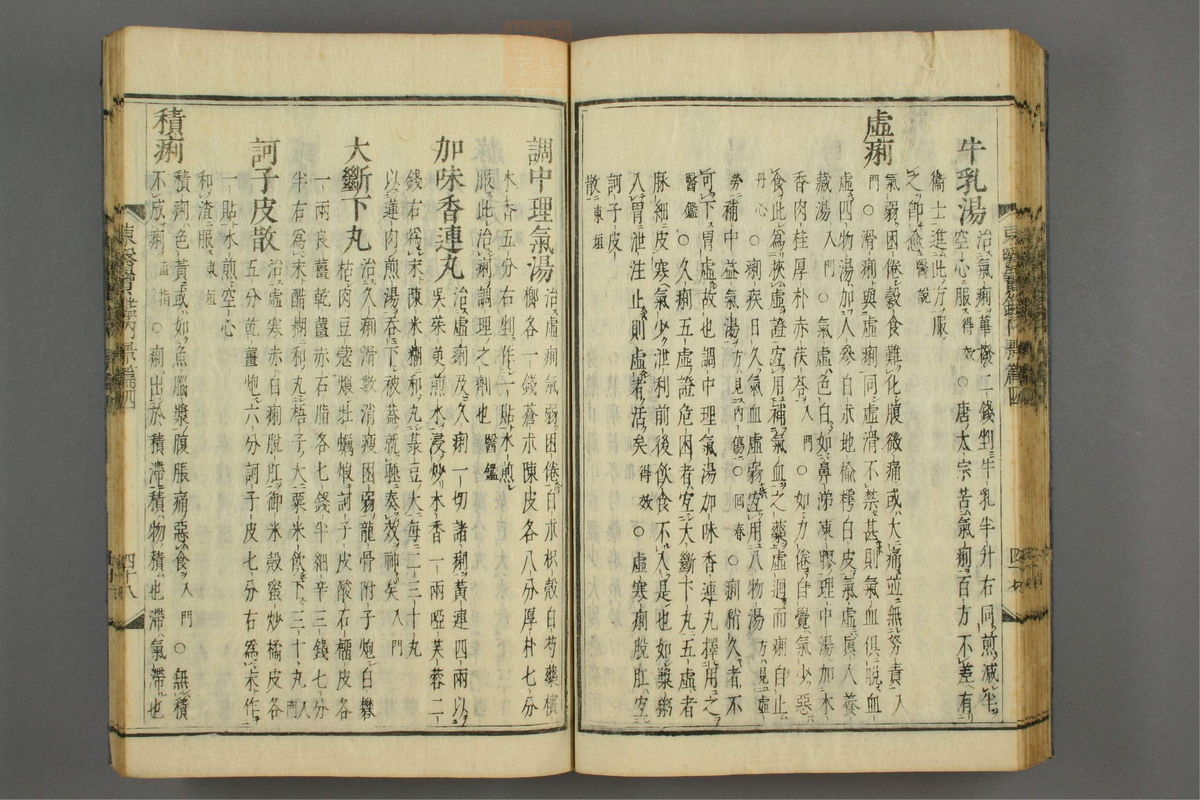 牛乳湯 治氣痢蓽撥二錢剉牛乳半升右同煎減半
空心服得效○唐太宗苦氣痢百方不差有
衞士進此方服
之卽愈醫說
虛痢 氣弱困倦穀食難化腹微痛或大痛並無努責入
門○滑痢與虛痢同虛滑不禁甚則氣血俱脫血
虛四物湯加人參白朮地榆樗白皮氣虛眞人養
藏湯入門○氣虛色白如鼻涕凍膠理中湯加木
香肉桂厚朴赤茯苓入門○如力倦自覺氣少惡
食此爲挾虛證宜用補氣血之藥虛迴而痢自止
丹心○痢疾日久氣血虛弱宜用八物湯方見虛
勞補中益氣湯方見內傷○回春○痢稍久者不
可下胃虛故也調中理氣湯加味香連丸擇用之
醫鑑○久痢五虛證危困者宜大斷下丸五虛者
脉細皮寒氣少泄利前後飮食不入是也如漿粥
入胃泄注止則虛者活矣得效○虛寒痢脫肛宜
訶子皮
散東垣
調中理氣湯 治虛痢氣弱困倦白朮枳殼白芍藥檳
榔各一錢蒼朮陳皮各八分厚朴七分
木香五分右剉作一貼水煎
服此治痢調理之劑也醫鑑
加味香連丸 治虛痢及久痢一切諸痢黃連四兩以
吳茱萸煎水浸炒木香一兩啞芙蓉二
錢右爲末陳米糊和丸菉豆大每二三十丸
以蓮肉煎湯呑下被蓋就睡奏效神矣入門
大斷下丸 治久痢滑數消瘦困弱龍骨附子炮白礬
枯肉豆蔲煨牡蠣煅訶子皮酸石榴皮各
一兩良薑乾薑赤石脂各七錢半細辛三錢七分
半右爲末醋糊和丸梧子大粟米飮下三十丸入門
訶子皮散 治虛寒赤白痢脫肛御米殼蜜炒橘皮各
五分乾薑炮六分訶子皮七分右爲末作
一貼水煎空心
和渣服東垣
積痢 積痢色黃或如魚腦漿腹脹痛惡食入門○無積
不成痢直指○痢出於積滯積物積也滯氣滯也